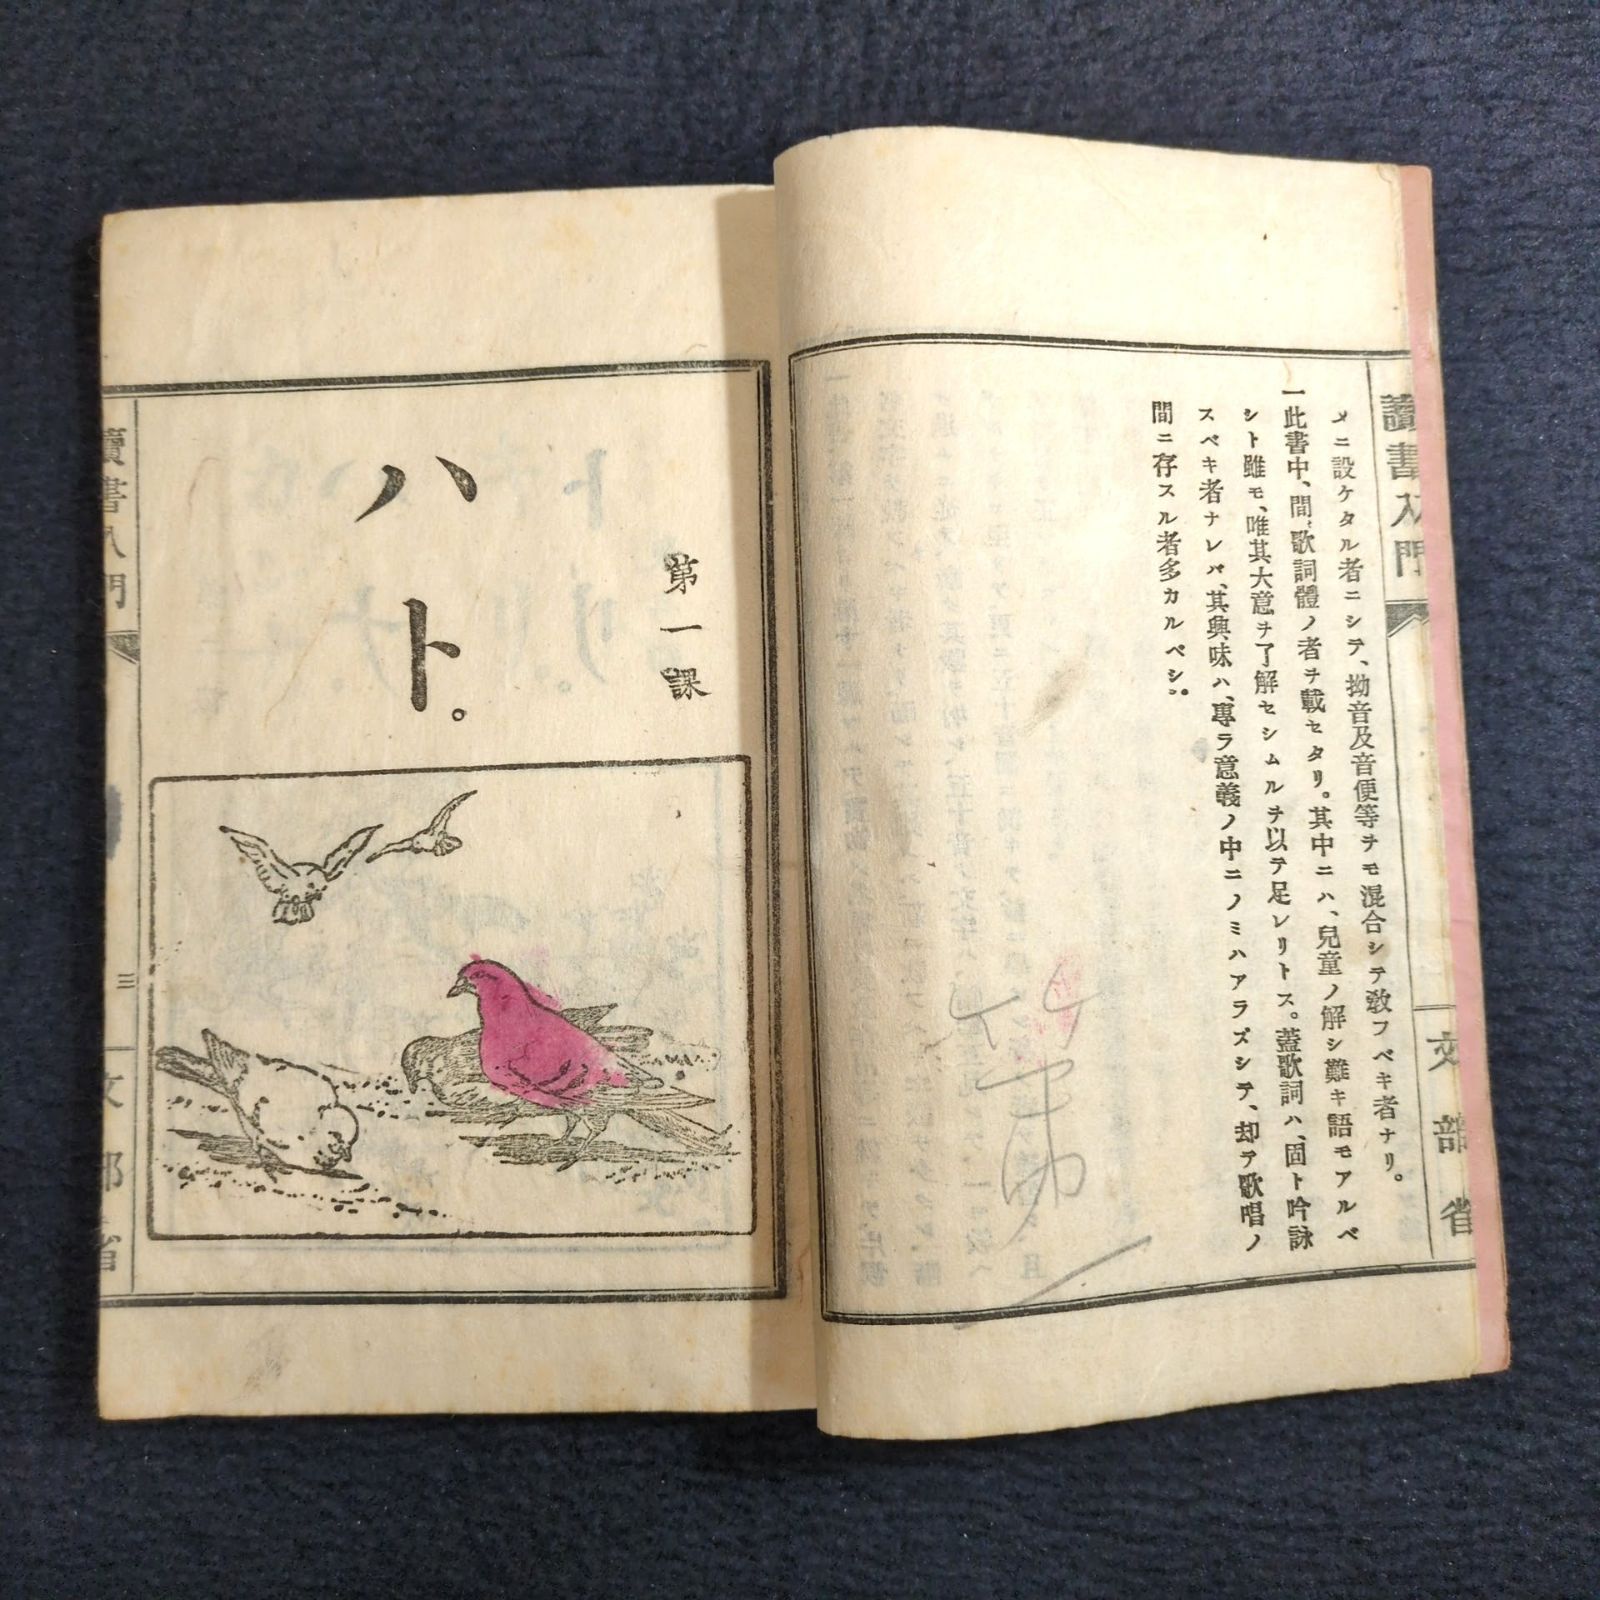 讀書入門
文部省
メニ設ケタル者ニシテ、拗音及音便等ヲモ混合シテ敎フベキ者ナリ。
一此書中、間、歌詞體ノ者ヲ載セタリ。其中ニハ、兒童ノ解シ難キ語モアルベ
シト雖モ、唯其大意ヲ了解セシムルヲ以テ足レリトス。蓋歌詞ハ、固ト吟詠
スベキ者ナレバ、其興味ハ、專ラ意義ノ中ニノミハアラズシテ、却テ歌唱ノ
間ニ存スル者多カルベシ。
第一課
ハト。
讀書入門
三
文部省